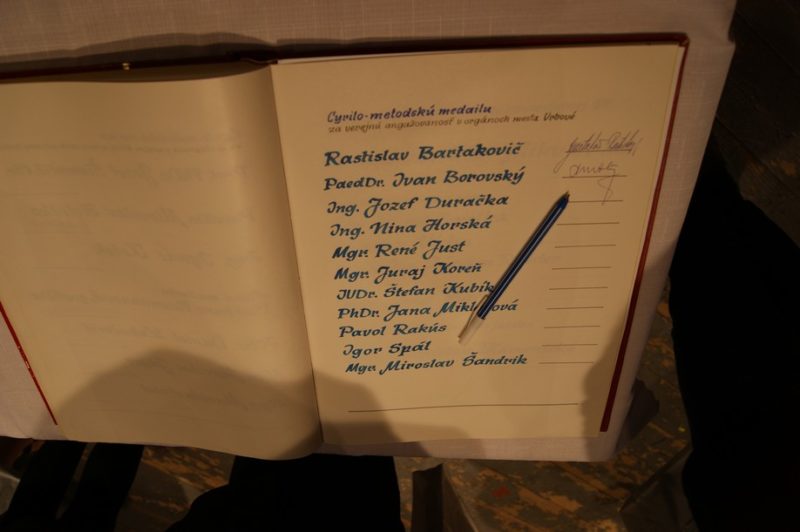 Cyrilo-metodskú medailu
za verejnú angažovanosť v orgánoch mesta Vrbové
Rastislav Bartakovič
PaedDr. Ivan Borovský
Ing. Jozef Duračka
Ing. Nina Horská
Mgr. René Just
Mgr. Juraj Koreň
JUDr. Štefan Kubík
PhDr. Jana
Pavol Rakús
Igor Spál
Mgr. Miroslav Šandrik